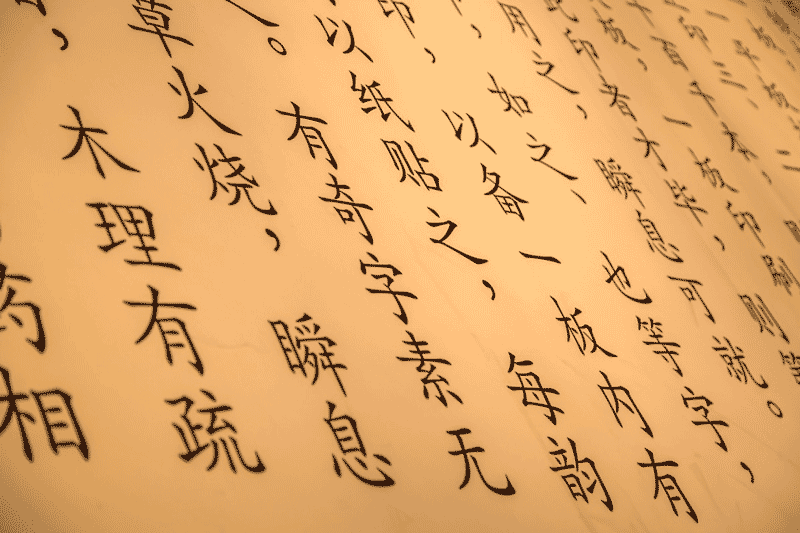 印三、二
十百千本，
板，一板印刷
此印者才毕，则
用之，瞬息可就。
，如之、也等字，
印，以备一板内有
以纸贴之，每韵
。有奇字素无
草火烧，瞬息
，木理有疏
药相